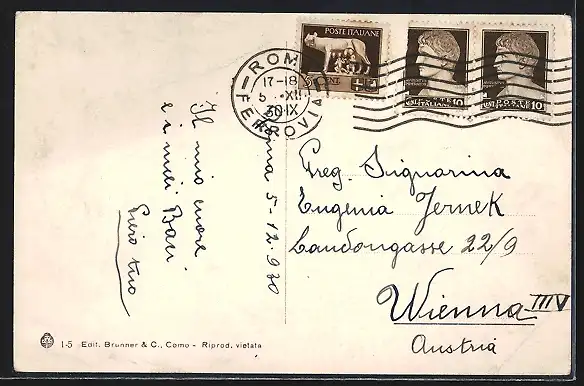 ROMA
FERROVIA
17-18
5 XII
30 IX
POSTE ITALIANE
CENT
POSTE ITALIANE 10
POSTE 10
Roma 5-12-930
Il mio cuore
e i miei Baci
Piero tuo
Greg. Signorina
Eugenia Jernek
Laudongasse 22/9
Wienna VIII
Austria
1-5 Edit. Brunner & C., Como - Riprod. vietata